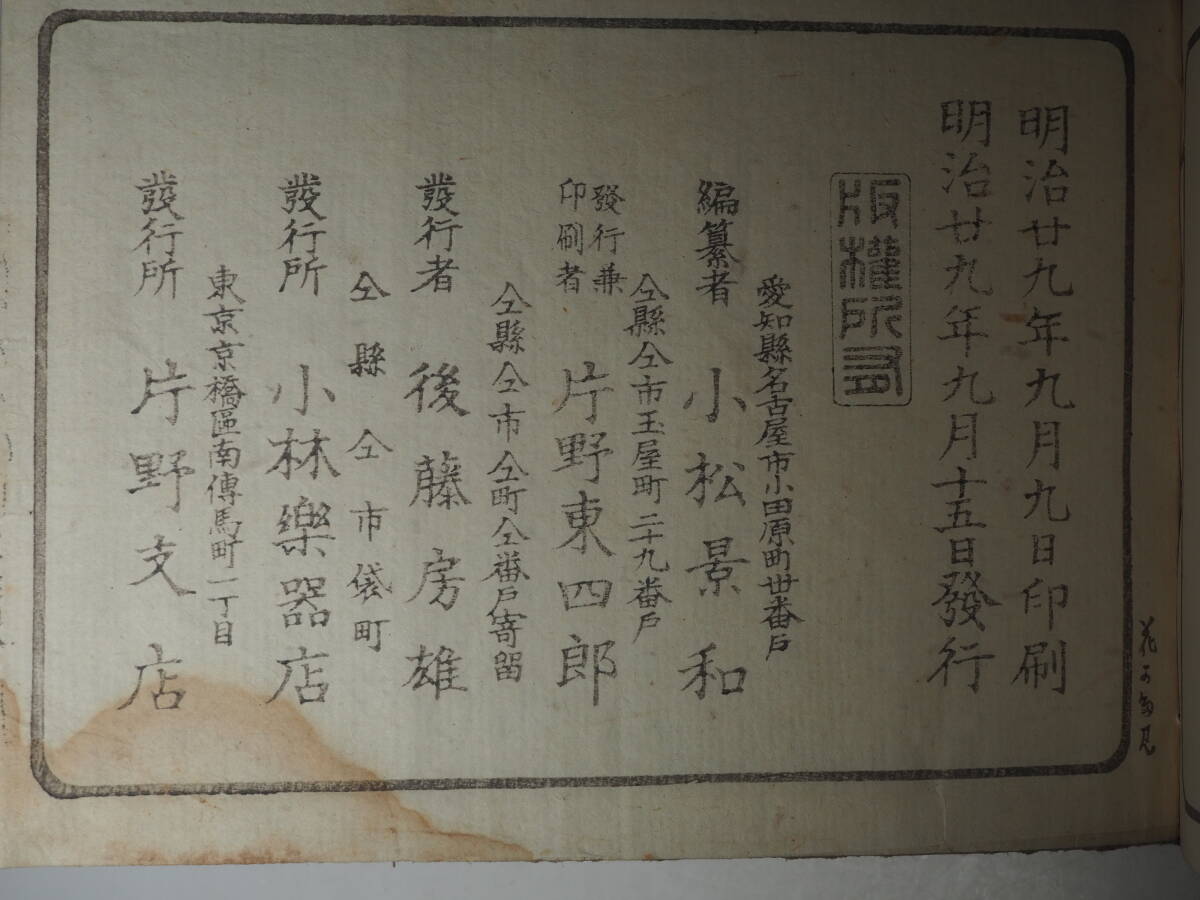 明治廿九年九月九日印刷
明治廿九年九月十五日發行
版權所有
愛知縣名古屋市小田原町丗番戸
編纂者 小松景和
仝縣仝市玉屋町二十九番戸
發行兼
印刷者 片野東四郎
仝縣仝市仝町仝番戸寄留
發行者 後藤房雄
仝縣仝市袋町
發行所 小林樂器店
東京京橋區南傳馬町一丁目
發行所 片野支店